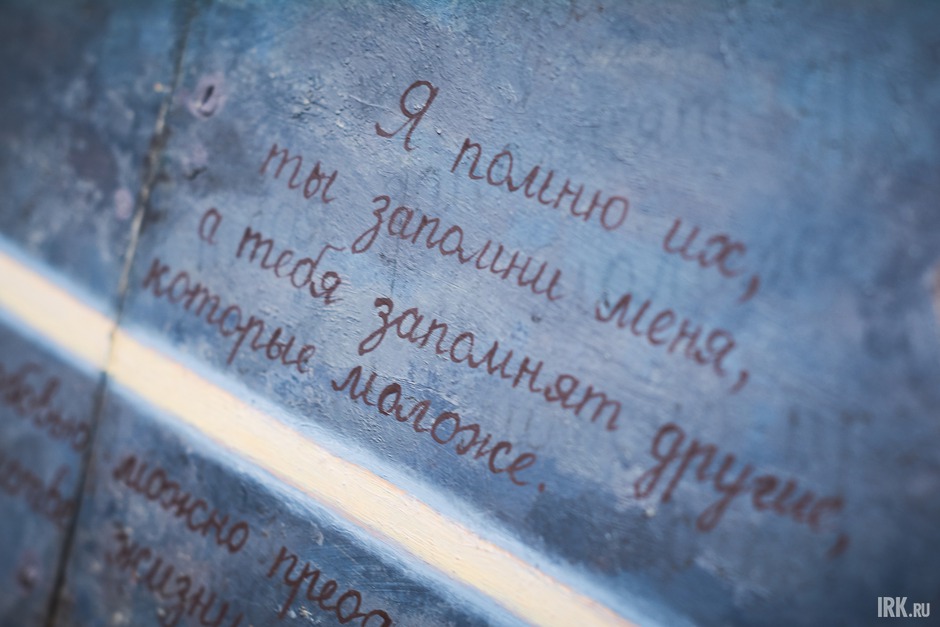 Я помню их,
ты запомни меня,
а тебя запомнят другие,
которые моложе.
можно
жизни
IRK.RU